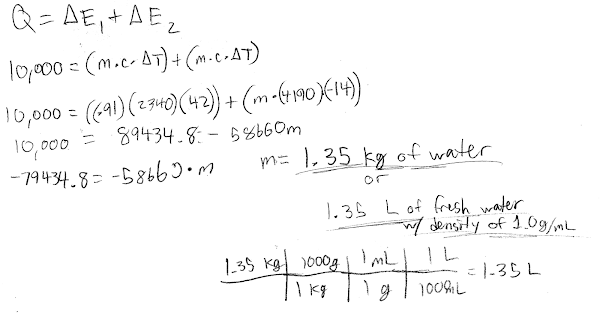 Q = ΔE₁ + ΔE₂
10,000 = (m.c. ΔT) + (m.c.ΔT)
10,000 = ((.91)(2340)(42)) + (m.(4190)(-14))
10,000 = 89434.8 - 58660m
-79434.8 = -58660.m
m = 1.35 kg of water
or
1.35 L of fresh water
w/ density of 1.0g/mL
1.35 kg | 1000g | 1 mL | 1 L = 1.35 L
1 kg | 1 g | 1000mL